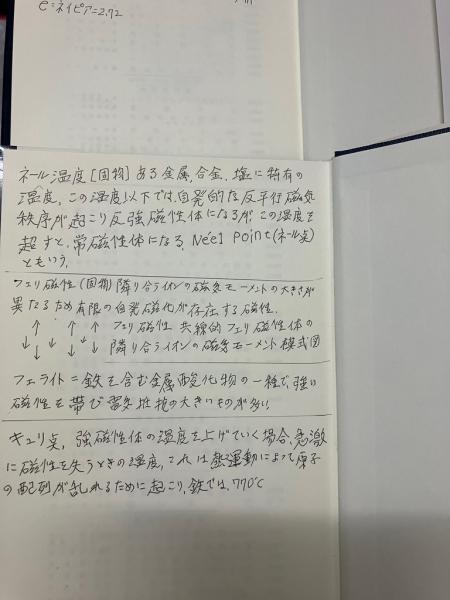 e=ネイピア=2.72
ネール温度[固物]ある金属、合金、塩に特有の
温度、この温度以下では、自発的な反平行磁気
秩序が起こり反強磁性体になるがこの温度を
越すと、常磁性体になる、Néel Point(ネール点)
ともいう。
フェリ磁性(固物)隣り合うイオンの磁気モーメントの大きさが
異なるため有限の自発磁化が存在する磁性.
↑ ↑ ↑ ↑ フェリ磁性 共線的フェリ磁性体の
↓ ↓ ↓ ↓ ↓ 隣り合うイオンの磁気モーメント模式図
フェライト=鉄を含む金属酸化物の一種で、強い
磁性を帯び電気抵抗の大きいものが多い。
キュリ点, 強磁性体の温度を上げていく場合、急激
に磁性を失うときの温度, これは熱運動によって原子
の配列が乱れるために起こり, 鉄では, 770℃